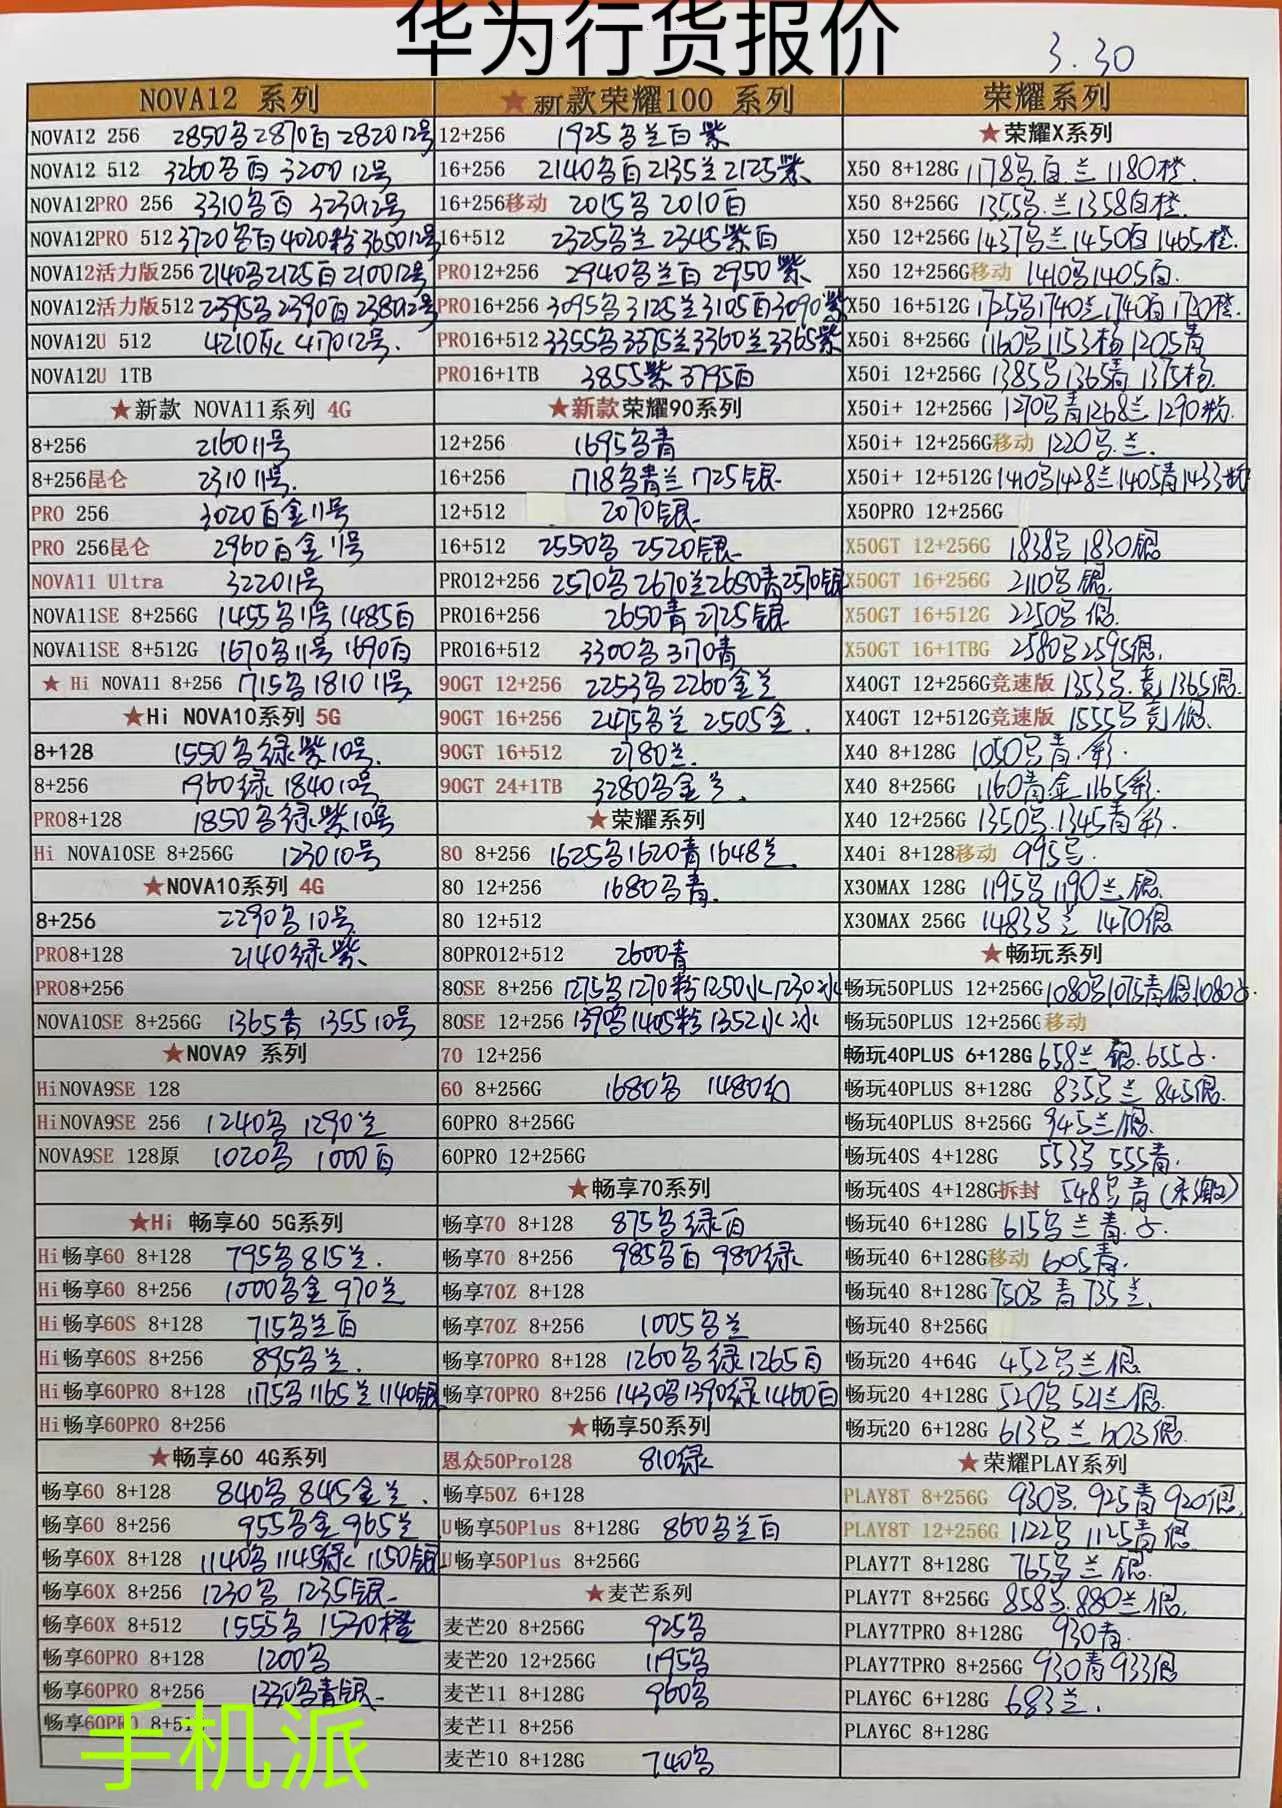 华为行货报价
3.30
NOVA12 系列
NOVA12 256 2850鸟2870白282012号
NOVA12 512 3260鸟白 320012号
NOVA12PRO 256 3310鸟白 323012号
NOVA12PRO 512 3720鸟白4020粉365012号
NOVA12活力版256 2140鸟2125白210012号
NOVA12活力版512 2395鸟2390白238012号
NOVA12U 512 4210灰 417012号.
NOVA12U 1TB
★新款 NOVA11系列 4G
8+256 216011号
8+256昆仑 231011号.
PRO 256 3020白金11号
PRO 256昆仑 2960白金11号
NOVA11 Ultra 322011号
NOVA11SE 8+256G 1455鸟11号1485白
NOVA11SE 8+512G 1670鸟11号1690白
★ Hi NOVA11 8+256 1715鸟181011号
★Hi NOVA10系列 5G
8+128 1550鸟绿紫10号.
8+256 1960绿184010号
PRO8+128 1850鸟绿紫10号
Hi NOVA10SE 8+256G 123010号
★NOVA10系列 4G
8+256 2290鸟10号
PRO8+128 2140绿紫
PRO8+256
NOVA10SE 8+256G 1365青 135510号
★NOVA9 系列
HiNOVA9SE 128
HiNOVA9SE 256 1240鸟 1290兰
NOVA9SE 128原 1020鸟 1000白
★Hi 畅享60 5G系列
Hi畅享60 8+128 795鸟815兰.
Hi畅享60 8+256 1000鸟金970兰
Hi畅享60S 8+128 715鸟兰白
Hi畅享60S 8+256 895鸟兰.
Hi畅享60PRO 8+128 1175鸟1165兰1140银
Hi畅享60PRO 8+256
★畅享60 4G系列
畅享60 8+128 840鸟845金兰.
畅享60 8+256 955鸟金965兰
畅享60X 8+128 1140鸟1145绿1150银
畅享60X 8+256 1230鸟 1235银
畅享60X 8+512 1555鸟 1530橙
畅享60PRO 8+128 1200鸟
畅享60PRO 8+256 1330鸟青银
畅享60PRO 8+51
手机派
★新款荣耀100 系列
12+256 1925鸟兰白紫
16+256 2140鸟白2135兰2125紫
16+256移动 2015鸟2010白
16+512 2325鸟兰 2345紫白
PRO12+256 2940鸟兰白2950紫
PRO16+256 3095鸟3125兰3105白3090紫
PRO16+512 3355鸟3375兰3360兰3365紫
PRO16+1TB 3855紫3795白
★新款荣耀90系列
12+256 1695鸟青
16+256 1718鸟青兰1725银
12+512 2070银
16+512 2550鸟 2520银
PRO12+256 2570鸟2670兰2650青2570银
PRO16+256 2650青2725银
PRO16+512 3300鸟3170青
90GT 12+256 2253鸟2260金兰
90GT 16+256 2475鸟兰 2505金.
90GT 16+512 2780兰.
90GT 24+1TB 3280鸟金兰.
★荣耀系列
80 8+256 1625鸟1620青1648兰
80 12+256 1680鸟青.
80 12+512
80PRO12+512 2600青
80SE 8+256 1275鸟1270粉1250水1230冰
80SE 12+256 1390鸟1405粉1352水冰
70 12+256
60 8+256G 1680鸟 1480幻
60PRO 8+256G
60PRO 12+256G
★畅享70系列
畅享70 8+128 875鸟绿白
畅享70 8+256 985鸟白980绿
畅享70Z 8+128
畅享70Z 8+256 1005鸟兰
畅享70PRO 8+128 1260鸟绿1265白
畅享70PRO 8+256 1430鸟1390绿1460白
★畅享50系列
恩众50Pro128 810绿
畅享50Z 6+128
U畅享50Plus 8+128G 860鸟兰白
U畅享50Plus 8+256G
★麦芒系列
麦芒20 8+256G 925鸟
麦芒20 12+256G 1195鸟
麦芒11 8+128G 960鸟
麦芒11 8+256
麦芒10 8+128G 740鸟
荣耀系列
★荣耀X系列
X50 8+128G 1178鸟.白.兰 1180橙.
X50 8+256G 1355鸟.兰1358白橙.
X50 12+256G 1437鸟兰1450白1465橙.
X50 12+256G移动 1410鸟1405白.
X50 16+512G 1725鸟1740兰1740白1720橙.
X50i 8+256G 1160鸟1153粉1205青
X50i 12+256G 1385鸟1365青1375粉.
X50i+ 12+256G 1270鸟青1268兰1290粉.
X50i+ 12+256G移动 1220鸟.兰.
X50i+ 12+512G 1410鸟1428兰1405青1433粉
X50PRO 12+256G
X50GT 12+256G 1838鸟1830银
X50GT 16+256G 2110鸟银.
X50GT 16+512G 2250鸟银.
X50GT 16+1TBG 2580鸟2595银.
X40GT 12+256G竞速版 1353鸟.竞1365银.
X40GT 12+512G竞速版 1555鸟竞银.
X40 8+128G 1050鸟青.彩.
X40 8+256G 1160青金1165彩.
X40 12+256G 1350鸟.1345青彩.
X40i 8+128移动 995鸟.
X30MAX 128G 1195鸟1190兰.银.
X30MAX 256G 1483鸟兰 1470银
★畅玩系列
畅玩50PLUS 12+256G 1080鸟1075青银1080
畅玩50PLUS 12+256G移动
畅玩40PLUS 6+128G 658兰 银.655
畅玩40PLUS 8+128G 835鸟兰845银.
畅玩40PLUS 8+256G 945兰银.
畅玩40S 4+128G 553鸟555青.
畅玩40S 4+128G拆封 548鸟青(未激)
畅玩40 6+128G 615鸟兰青.
畅玩40 6+128G移动 605青.
畅玩40 8+128G 750鸟青735兰.
畅玩40 8+256G
畅玩20 4+64G 452鸟兰银
畅玩20 4+128G 520鸟521兰银.
畅玩20 6+128G 613鸟兰603银.
★荣耀PLAY系列
PLAY8T 8+256G 930鸟.925青920银.
PLAY8T 12+256G 1122鸟 1125青银
PLAY7T 8+128G 765鸟兰银.
PLAY7T 8+256G 858鸟.880兰银.
PLAY7TPRO 8+128G 930青.
PLAY7TPRO 8+256G 930青933银
PLAY6C 6+128G 683兰.
PLAY6C 8+128G